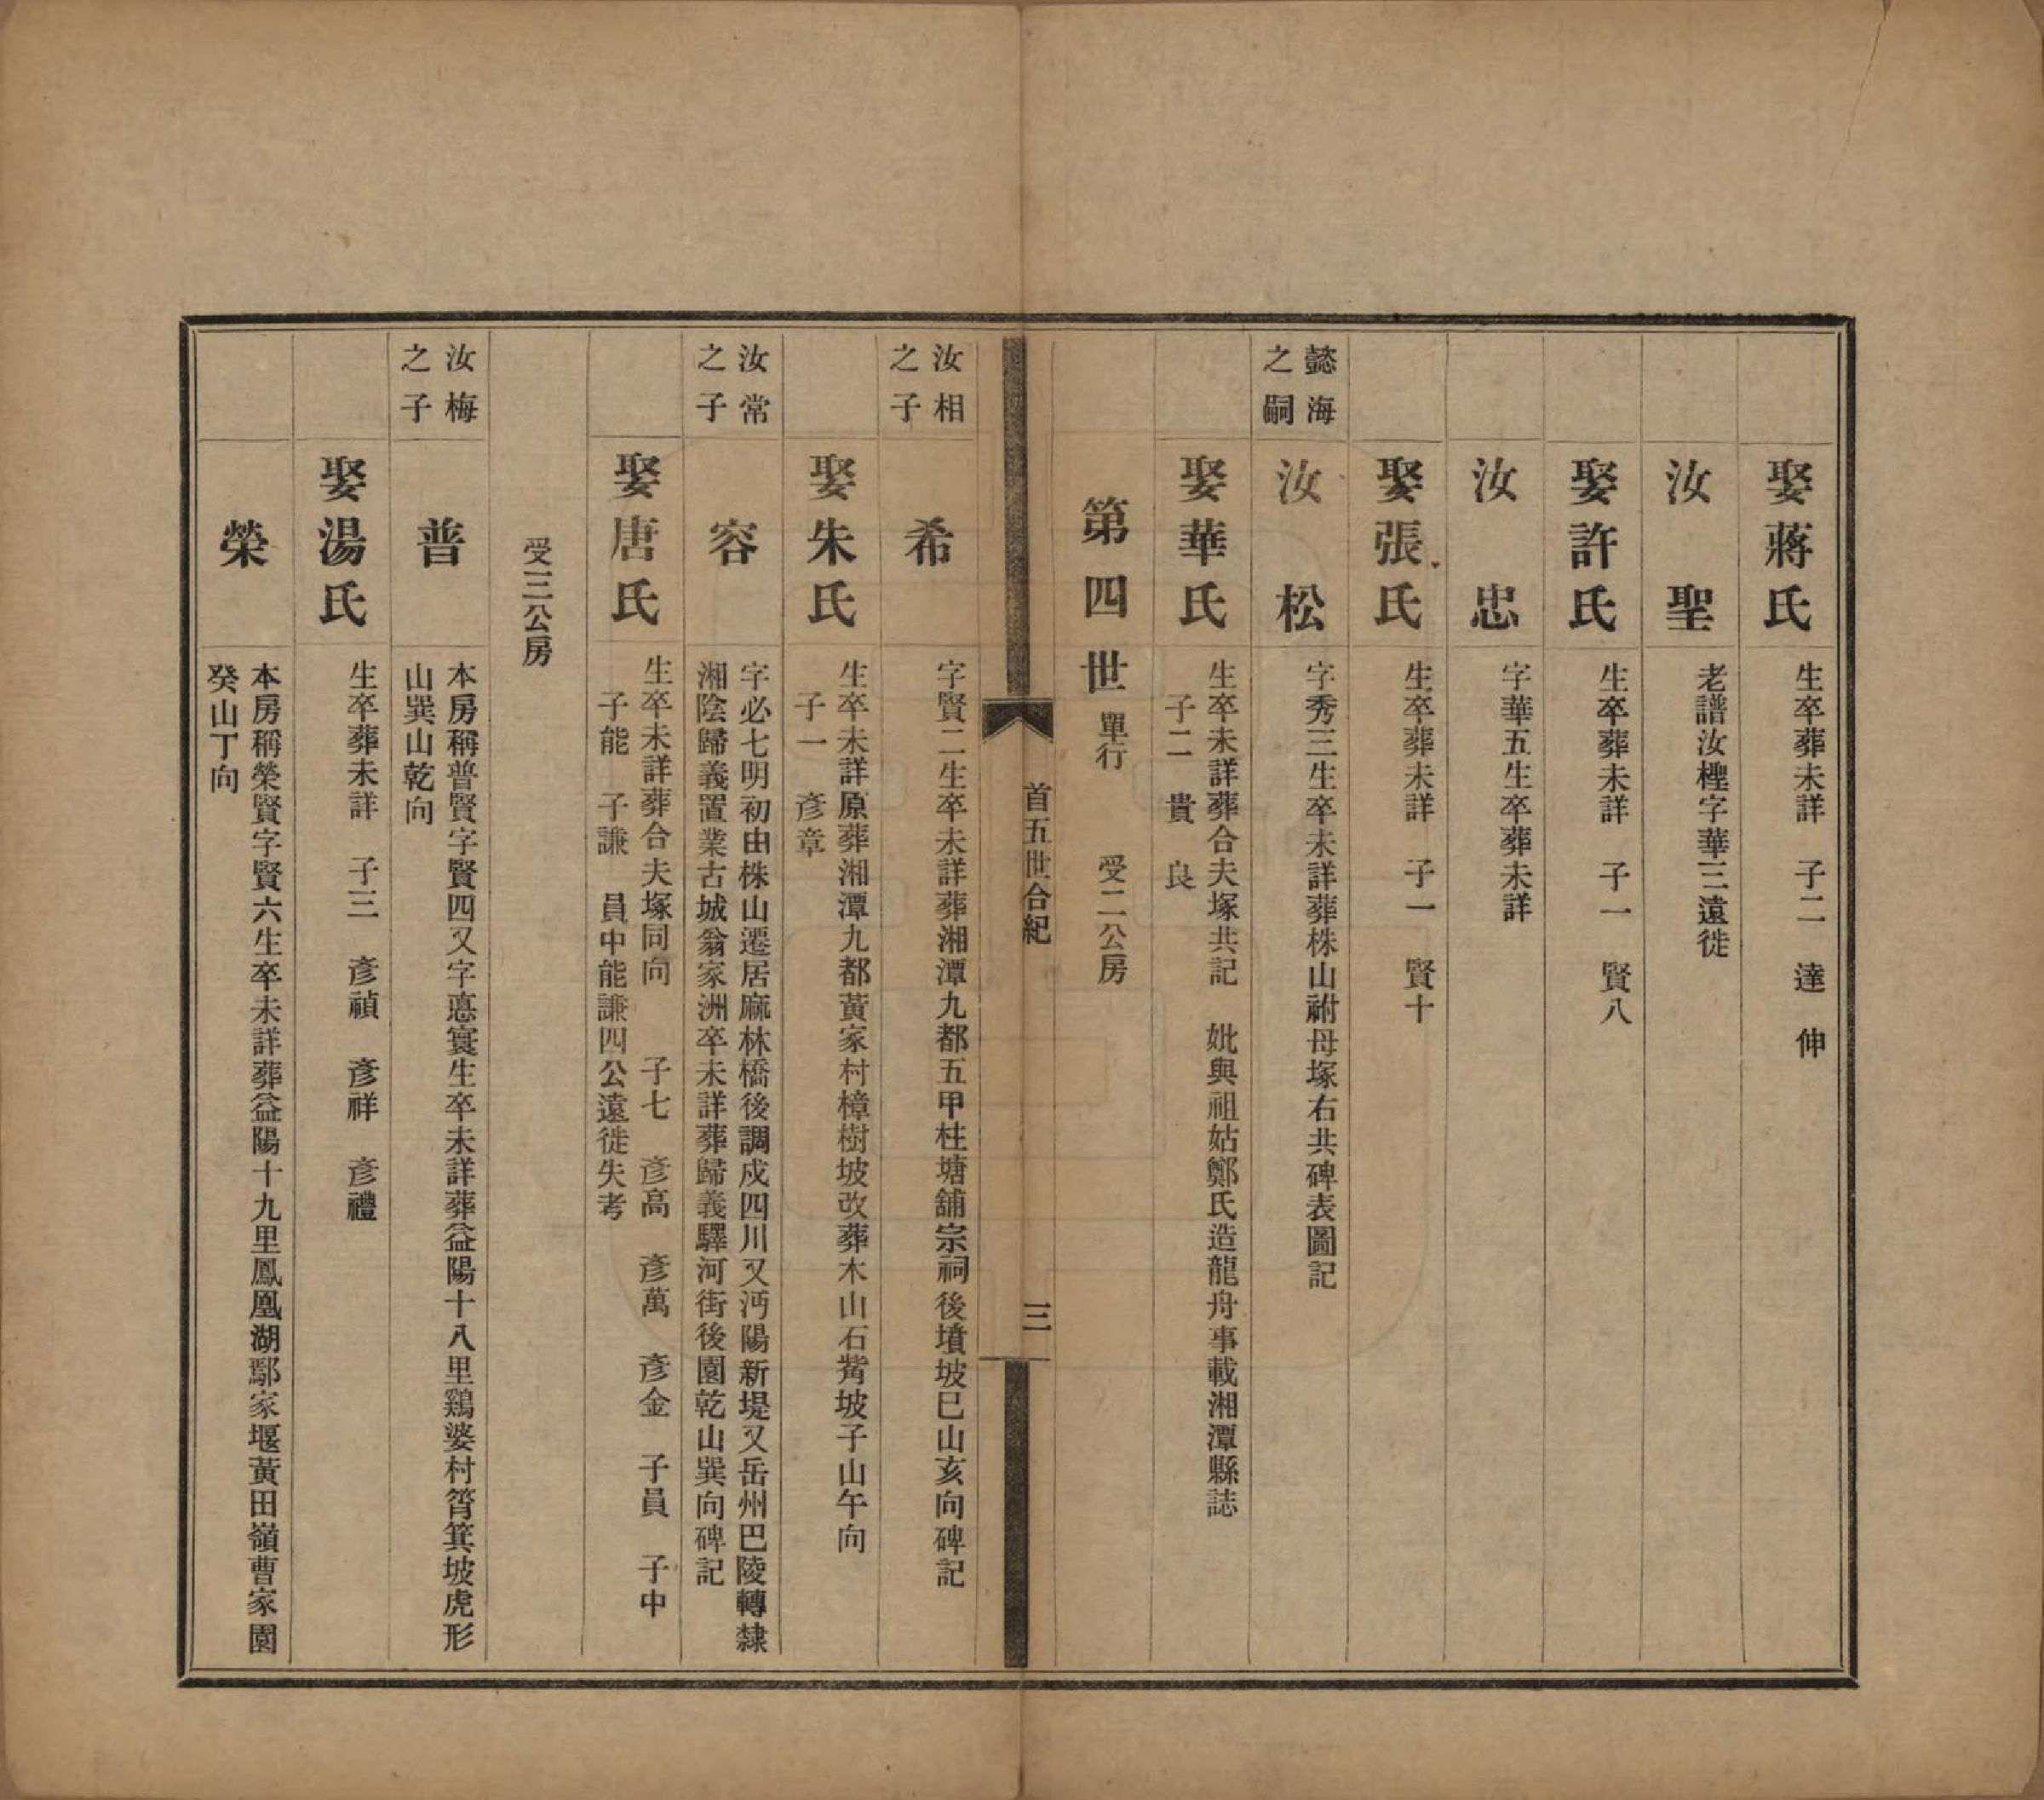 娶蔣氏
生卒葬未詳　子二　達　伸
汝聖
老譜汝檉字華三遠徙
娶許氏
生卒葬未詳　子一　賢八
汝忠
字華五生卒葬未詳
娶張氏
生卒葬未詳　子一　賢十
懿海
之嗣
汝松
字秀三生卒未詳葬株山祔母塚右共碑表圖記
娶華氏
生卒未詳葬合夫塚共記　妣與祖姑鄭氏造龍舟事載湘潭縣誌
子二　貴　良
第四世　單行　受二公房
首五世合紀
三
汝相
之子
希
字賢二生卒未詳葬湘潭九都五甲桂塘舖宗祠後墳坡巳山亥向碑記
娶朱氏
生卒未詳原葬湘潭九都黃家村樟樹坡改葬木山石觜坡子山午向
子一　彥章
汝常
之子
容
字必七明初由株山遷居麻林橋後調戍四川又沔陽新堤又岳州巴陵轉隸
湘陰歸義置業古城翁家洲卒未詳葬歸義驛河街後園乾山巽向碑記
娶唐氏
生卒未詳葬合夫塚同向　子七　彥高　彥萬　彥金　子員　子中
子能　子謙　員中能謙四公遠徙失考
受三公房
汝梅
之子
普
本房稱普賢字賢四又字惪寰生卒未詳葬益陽十八里鷄婆村筲箕坡虎形
山巽山乾向
娶湯氏
生卒葬未詳　子三　彥禎　彥祥　彥禮
榮
本房稱榮賢字賢六生卒未詳葬益陽十九里鳳凰湖鄢家堰黃田嶺曹家園
癸山丁向